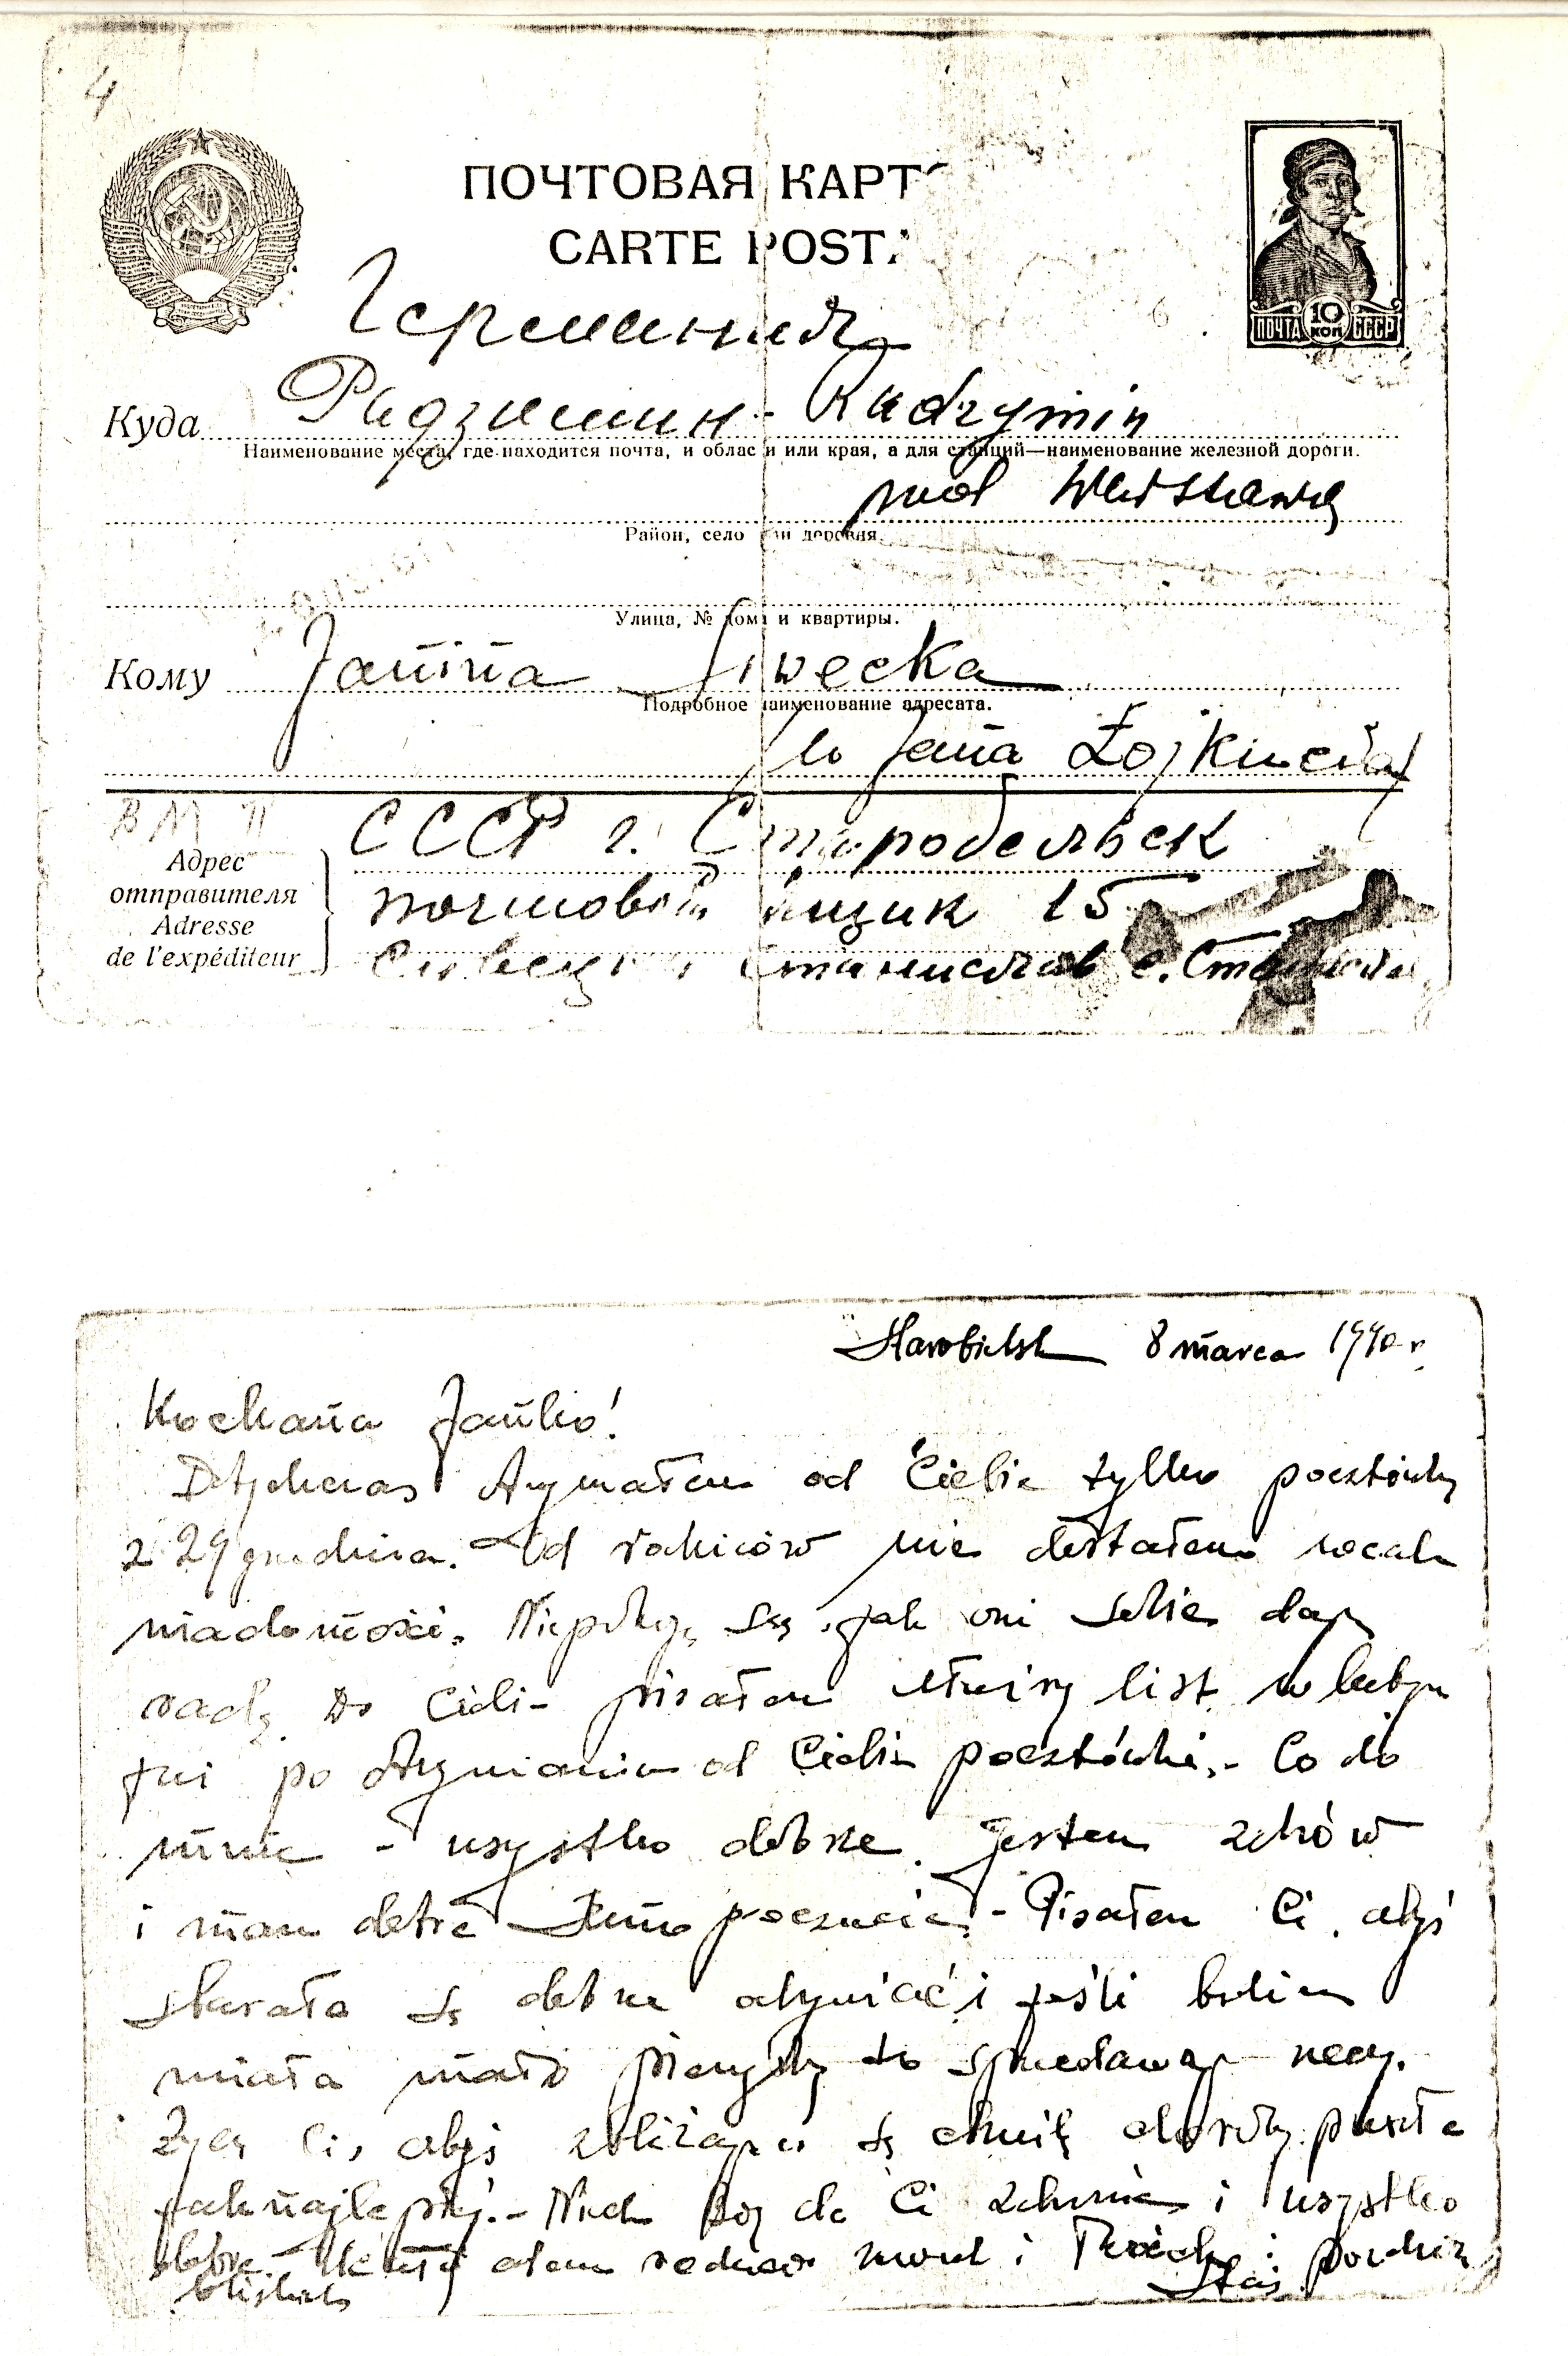 4
ПОЧТОВАЯ КАРТ
CARTE POST
Германия
Куда Радзимин - Radzymin
Наименование места, где находится почта, и области или края, а для станций—наименование железной дороги.
pod Warszawą
Район, село или деревня.
Улица, № дома и квартиры.
Кому Janina Siwecka
Подробное наименование адресата.
Jana Łojkucia
ПОЧТА 10 КОП СССР
Адрес
отправителя
Adresse
de l'expéditeur
СССР г. Старобельск
почтовый ящик 15
Сивецки Станислав с. Станислава
Starobielsk 8 marca 1940 r.
Kochana Janko!
Dotychczas otrzymałem od Ciebie tylko pocztówkę
z 29 grudnia. Od rodziców nie dostałem wcale
wiadomości. Niepokoję się, jak oni sobie dają
radę. Do Ciebie pisałem list w lutym
już po otrzymaniu od Ciebie pocztówki. - Co do
mnie - wszystko dobrze. Jestem zdrów
i mam dobre samopoczucie. - Pisałem Ci, abyś
starała się dobrze odżywiać i jeśli będziesz
miała mało pieniędzy to sprzedawaj rzeczy.
Życzę Ci, abyś zbliżającą się chwilę choroby przeszła
jak najlepiej. - Niech Bóg da Ci zdrowie i wszystko
dobre. - Uściskaj ode mnie i Twoich i
bliskich Staś